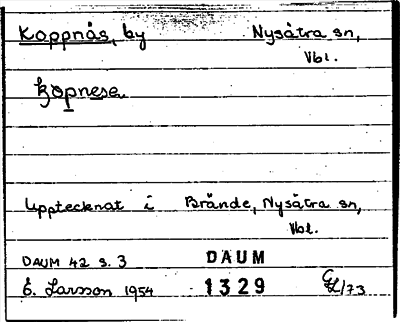 Koppnäs, by Nysätra sn,
Vbl.
Upptecknat i Brände, Nysätra sn,
Vbl.
DAUM 42 s. 3 DAUM
E. Larsson 1954 1329 /73